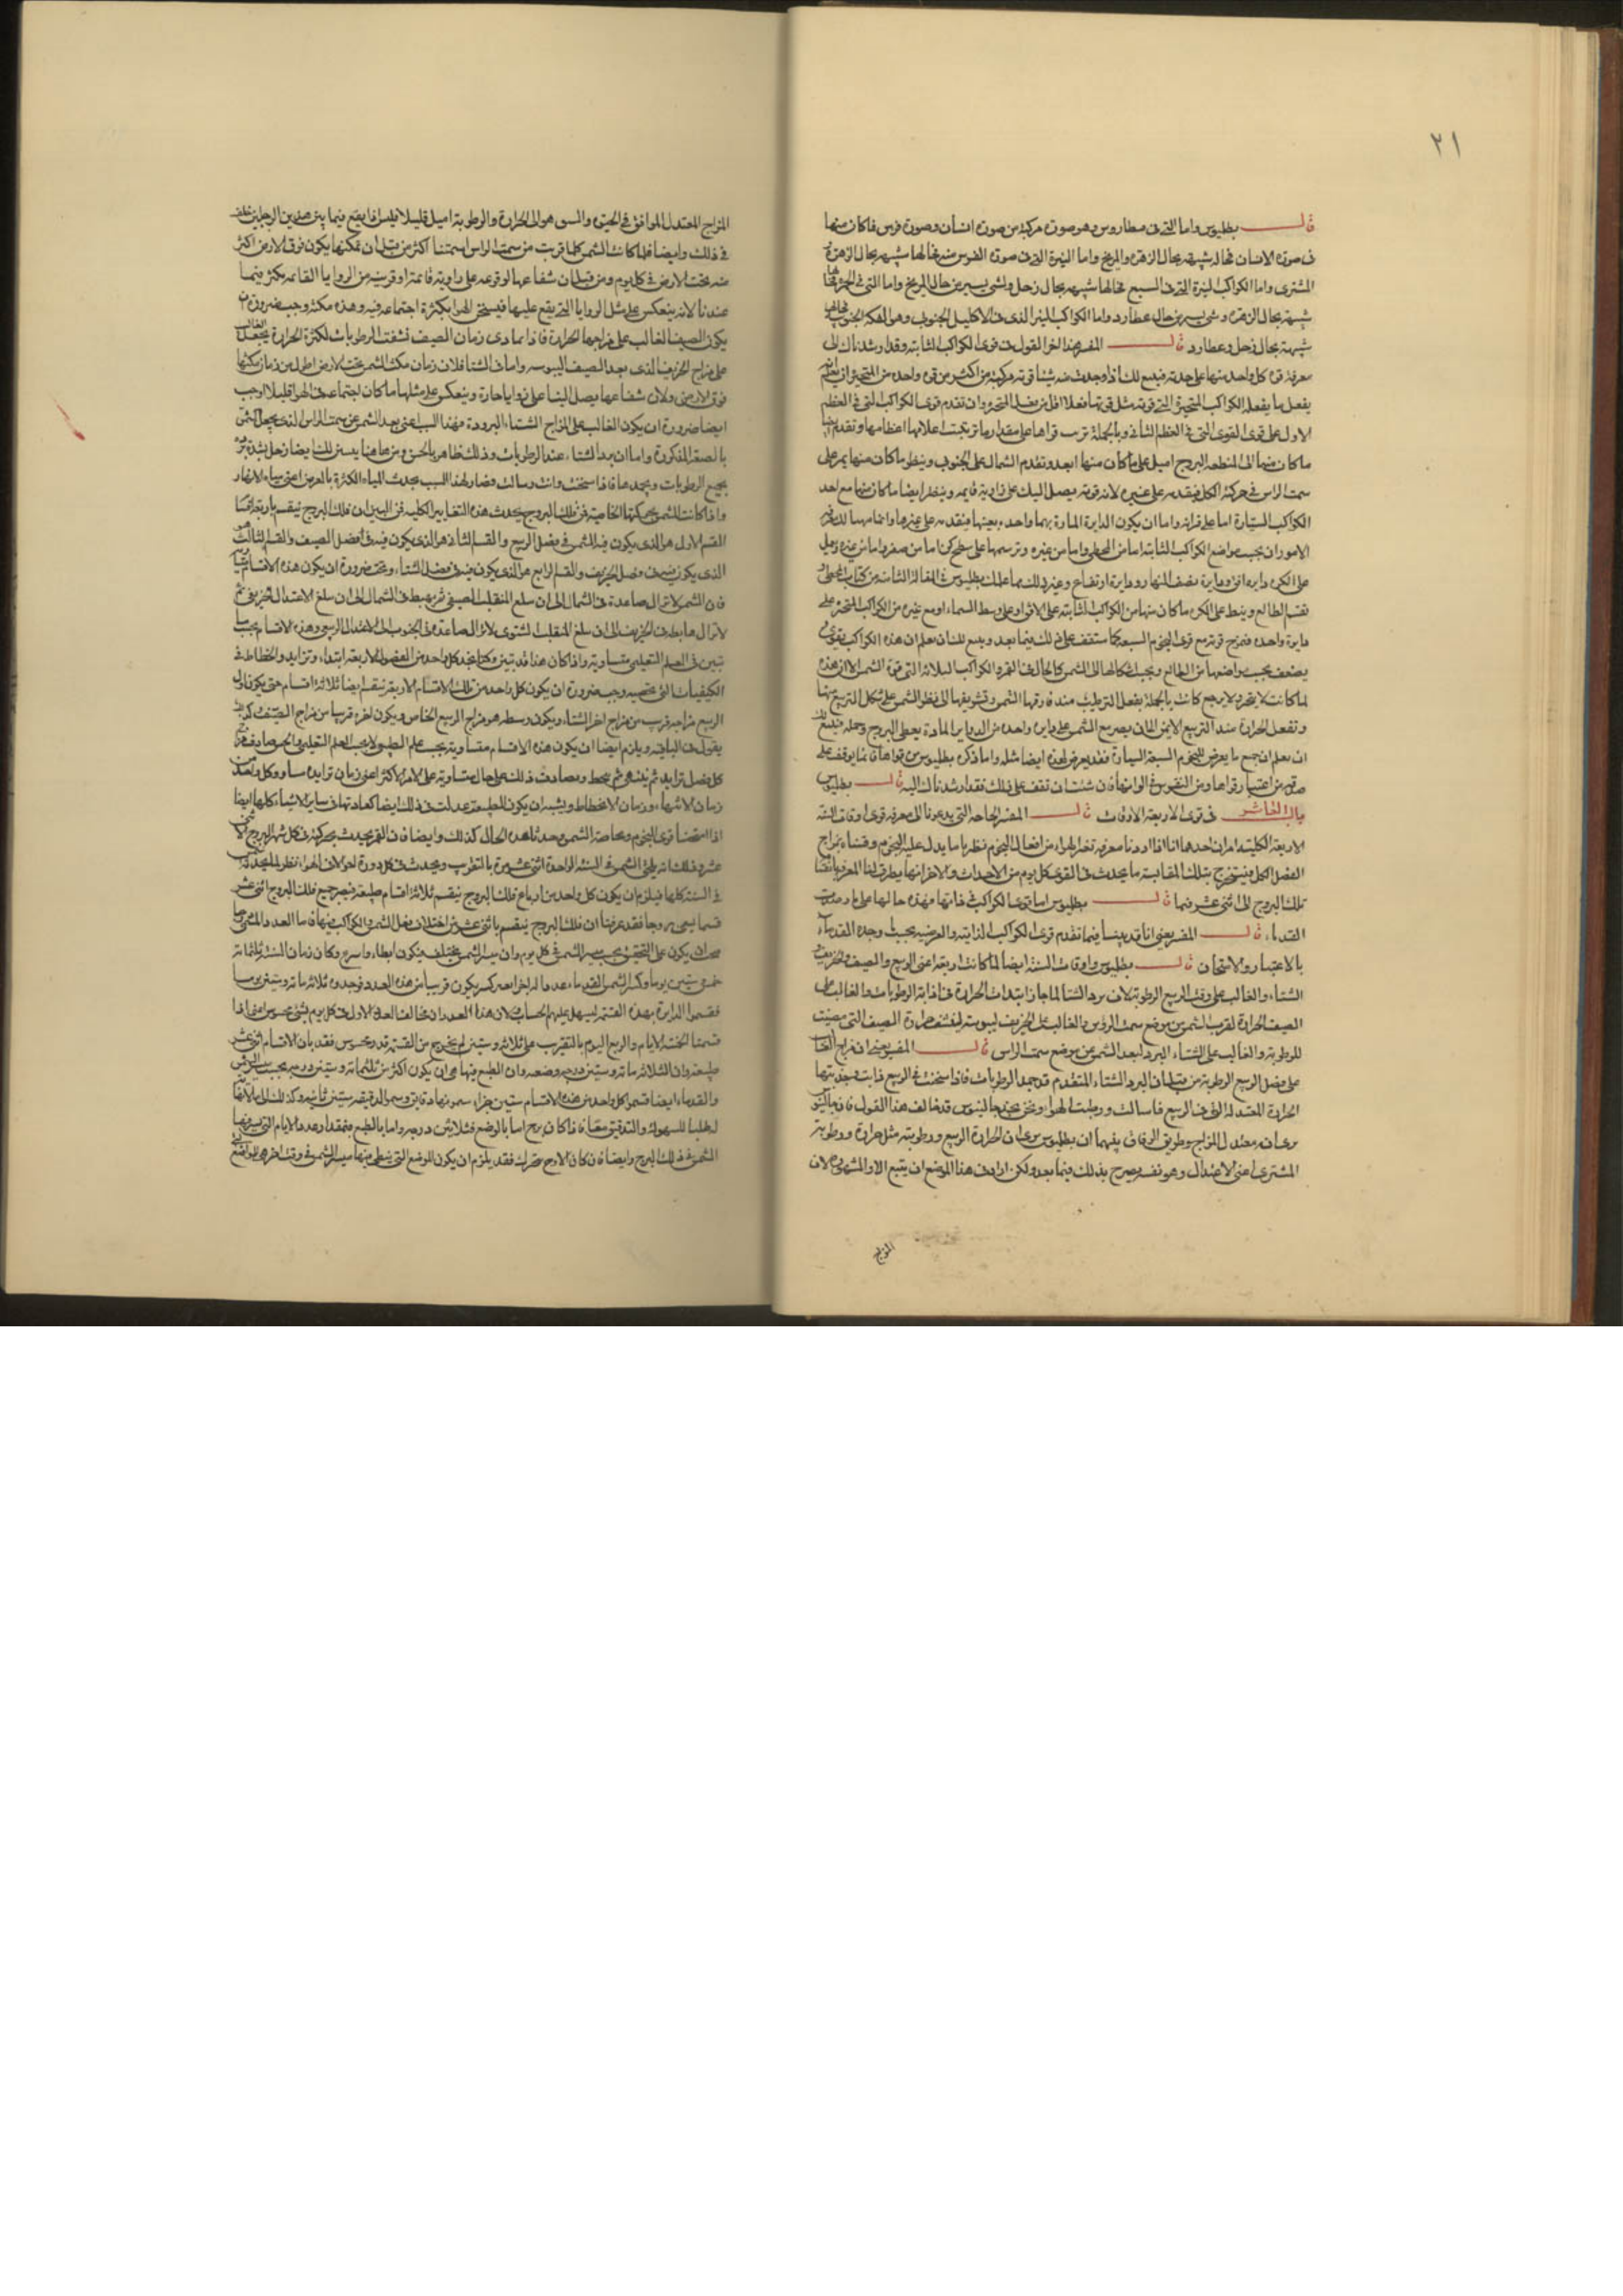 ٢١
قال بطليموس واما التى فى قنطاروس وهو صورة مركبة من صورة انسان وصورة فرس فما كان منها
فى صورة الانسان فحاله شبيهة بحال الزهرة والمريخ واما النيرة التى فى صورة الفرس منه فحالها شبيهة بحال الزهرة و
المشترى واما الكواكب النيرة التى فى السبع فحالها شبيهة بحال زحل وشى يسير من حال المريخ واما التى فى
شبيهة بحال الزهرة وشى يسير من حال عطارد واما الكواكب النير الذى فى الاكليل الجنوبى وهو الفكه الجنوبى
شبيهة بحال زحل وعطارد قال المفسر هذا اخر القول فى قوى الكواكب الثابته وقد ارشدناك الى
معرفة قوة كل واحد منها على حدته
يفعل ما يفعله الكواكب المتحيرة التى قوته مثل قوتها
الاول على قوى القوى التى فى العظم الثانى وبالجملة ترتب قواها على مقدار
ما كان منها الى منطقه البروج اميل على ما كان منها ابعد وتقدم الشمال على الجنوب وينظر ما كان منها يمر على
سمت الراس فى حركة الكل فيقدمه على غيره لانه قوته يصل اليك على زاوية قايمه وينظر ايضا ما كان منها مع احد
الكواكب السيارة اما على قرانه واما ان يكون الدايرة المارة بهما واحده بعينها فيقدمه على غيرها
الامور ان يحسب مواضع الكواكب الثابته اما من المجسطى واما من غيره وترسمها على سطح كرة اما من صفر واما من غيره
على الكره دايره افق ودايرة نصف النهار ودايرة ارتفاع وغير ذلك مما علمك بطليموس فى المقالة الثامنة من كتاب المجسطى
تقسم الطالع وينظر على الكره ما كان منها من الكواكب الثابته على الافق او على وسط السماء او مع غيره من الكواكب المتحيرة على
دايرة واحده فتمزج قوته مع قوى النجوم السبعة كما ستقف على ذلك فيما بعد وينبغى لك ان تعلم ان هذه الكواكب يقوى و
يضعف بحسب مواضعها من الطالع وبحسب اشكالها الى الشمس كالحال فى القمر والكواكب الثلاثة التى فوق الشمس الا ان هذه
لما كانت لا يتحير ولا يرجع كانت بالجملة يفعل الترطيب منذ فارقها الشمس وتشريقها الى نظر الشمس على شكل التربيع منها
وتفعل الحرارة منذ التربيع الايمن الى ان يصير مع الشمس على دايره واحده من الدواير المارة بقطبى البروج وجمله فينبغى لك
ان تعلم ان جميع ما يعرض للنجوم السبعة السيارة فقد يعرض لهذه ايضا مثله واما ذكره بطليموس من قواها فانما يوقف على
صدقه من اعتبار قواها ومن التفرس فى الوانها فان شئت ان تقف على ذلك فقد ارشدناك اليه قال بطليموس
باب العاشر فى قوى الاربعة الاوقات قال المفسر الحاجه التى يدعونا الى معرفه قوى اوقات السنه
الاربعة الكلية امران احدهما انا اذا اردنا معرفه تغير الهواء من افعال النجوم نظرنا ما يدل عليه النجوم وقسناه بمزاج
الفصل الكلى فيستخرج بتلك المقايسة ما يحدث فى القوى كل يوم من الاحداث والاخر انها يطرق لنا الى معرفة انقسام
فلك البروج الى اثنى عشر قسما قال بطليموس اما قوى الكواكب فى ذاتها فهذه حالها على ما وصفت
القدماء قال المفسر يعنى انا قد بينا فيما تقدم قوى الكواكب الذاتية والعرضيه بحسب ما وجده القدماء
بالاعتبار والامتحان قال بطليموس واوقات السنة ايضا لما كانت اربعة اعنى الربيع والصيف والخريف و
الشتاء والغالب على وقت الربيع الرطوبة لان برد الشتا لما جاز ابتدات الحرارة فى اذابة الرطوبات والغالب على
الصيف الحرارة لقرب الشمس من موضع سمت الرؤس والغالب على الخريف اليبوسة لنشف حرارة الصيف التى مضت
للرطوبة والغالب على الشتاء البرد لبعد الشمس عن موضع سمت الراس قال المفسر يعنى ان مزاج الغالب
على فصل الربيع الرطوبة من قبل ان البرد الشتاء المتقدم قد جمد الرطوبات فاذا سخنت فى الربيع ذابت وجذبتها
الحرارة المعتدلة التى فى الربيع فاسالت ورطبت الهواء ونحن نجد جالينوس قد خالف هذا القول فان جالينوس
يرى انه معتدل المزاج وطريق الوفاق بينهما ان بطليموس يرى ان الحرارة الربيع ورطوبته مثل حرارة ورطوبة
المشترى اعنى الاعتدال وهو نفسه يصرح بذلك فيما بعد ولكن اراد فى هذا الموضع ان يتبع الامر المشهور لان
المزاج
المزاج المعتدل الموافق فى الحيوة والنمو هو الى الحرارة والرطوبة اميل قليلا فليس اذا يقع فيما بين هذين الرجلين خلف
فى ذلك وايضا فلما كانت الشمس كلما قربت من سمت الراس اسخنتنا اكثر من قبل ان مكثها يكون فوق الارض اكثر
منه تحت الارض فى كل يوم ومن قبل ان شعاعها لوقوعه على زاوية قائمة او قريبه من الزوايا القائمه يكثر فيما
عندنا لانه ينعكس على مثل الزوايا التى يقع عليها فيسخن الهوا بكثرة اجتماعه فيه وهذه مكثه وجب ضرورة ان
يكون الصيف الغالب على مزاجها الحرارة فاذا تمادى زمان الصيف نشفت الرطوبات لكثرة الحرارة فيجعل الغالب
على مزاج الخريف الذى بعد الصيف اليبوسه واما فى الشتا فلان زمان مكث الشمس تحت الارض اطول من زمان مكثها
فوق الارض ولان شعاعها يصل الينا على زوايا حادة وينعكس على مثلها ما كان اجتماعه فى الهوا قليلا وجب
ايضا ضرورة ان يكون الغالب على المزاج الشتاء البرودة فهذا السبب اعنى بعد الشمس عن سمت الراس الذى يجعل الشمس
بالصفة المذكورة واما ان برد الشتاء عقد الرطوبات وذلك ظاهر بالحس
يجمع الرطوبات ويجمدها فاذا سخنت ذابت وسالت فصار لهذا السبب يحدث المياه الكثيرة بالعرض اعنى مياه الانهار
واذا كانت الشمس بحركتها الخاصية فى فلك البروج يحدث هذه التغايير الكليه فمن البين ان فلك البروج ينقسم باربعة اقسام
القسم الاول هو الذى يكون فيه الشمس فى فصل الربيع والقسم الثانى هو الذى يكون فيه فى فصل الصيف والقسم الثالث هو
الذى يكون فيه فى فصل الخريف والقسم الرابع هو الذى يكون فيه فى فصل الشتاء ويجب ضرورة ان يكون هذه الاقسام
فان الشمس لا تزال صاعدة فى الشمال الى ان تبلغ المنقلب الصيفى ثم يهبط فى الشمال الى ان تبلغ الاعتدال الخريفى ثم
لا تزال هابطة فى الجنوب الى ان تبلغ المنقلب الشتوى لا تزال صاعدة فى الجنوب الى الاعتدال الربيعى وهذه الاقسام بحسب ما
تبين فى العلم التعليمى متساوية واذا كان هذا قد تبين وكنا نجد كل واحد من الفصول الاربعة ابتداء وتزايد وانحطاط فى
الكيفيات التى تخصه وجب ضرورة ان يكون كل واحد من تلك الاقسام الاربعة ينقسم ايضا ثلاثة اقسام حتى يكون اول
الربيع مزاجه قريب من مزاج اخر الشتاء ويكون وسطه هو مزاج الربيع الخاص ويكون اخره قريبا من مزاج الصيف
يقول فى الباقيه ويلزم ايضا ان يكون هذه الاقسام متساوية بحسب علم الطبيعى لا بحسب العلم التعليمى
كل فصل تزايد ثم ينتهى ثم ينحط ومصادف ذلك على حال متساوية على الامر الاكثر اعنى زمان تزايده مساو وكل واحد من
زمان الانتهاء وزمان الانحطاط ويشبه ان يكون الطبيعة عدلت فى ذلك ايضا كعادتها فى ساير الاشياء كلها ايضا
اذا امتحنا قوى النجوم وخاصة الشمس وجدنا هذه الحال كذلك وايضا فان القمر يحدث بحركته فى كل شهر
السنه الواحدة اثنى عشر مرة بالتقريب ويحدث فى كل دورة
فى السنة كلها فيلزم ان يكون كل واحد من ارباع فلك البروج ينقسم ثلاثة اقسام طبيعة فيصير جميع فلك البروج اثنى عشر
قسما يسمى بروجا فقد عرفنا ان فلك البروج ينقسم باثنى عشر من اختلاف فعل الشمس والكواكب فيها فاما العدد
يكون على التحقيق بحسب مسير الشمس فى كل يوم وان مسير الشمس مختلف فيكون ابطاء واسرع وكان زمان السنة ثلثمائة
خمس وستين يوما وكسر التمس القدماء عددا له اجزاء بغير كسر يكون قريبا من هذه العدد فوجدوه ثلاثمائة وستين يوما
فقسموا الدايرة بهذه القسمة ليسهل عليهم الحساب لان هذا العدد لن يخالف العدد الاول فى كل يوم بشى محسوس اعنى اذا
قسمنا الخمسة الايام والربع اليوم بالتقريب على ثلاثمائة وستين لم يخرج من القسمة قدر محسوس فقد بان الاقسام اثنى عشر
طبيعه وان الثلاثمائة وستين درجه وضعيه وان الطبع فيها هى ان يكون اكثر من ثلثمائة وستين درجه بحسب مسير الشمس
والقدماء ايضا قسموا كل واحد من هذه الاقسام ستين جزاء سموها دقايق وسموا الدقيقه ستين ثانيه وكذلك الى ما لا نهاية
لطلبا للسهولة والتدقيق معا فاذا كان برج اما بالوضع فثلاثين درجه واما بالطبع فبمقدار عدد الايام التى يسيرها
الشمس فى ذلك البرج وايضا فان كان الاوج متحرك فقد يلزم ان يكون الموضع التى يبطى فيها مسير الشمس فى وقت اخر هى المواضع